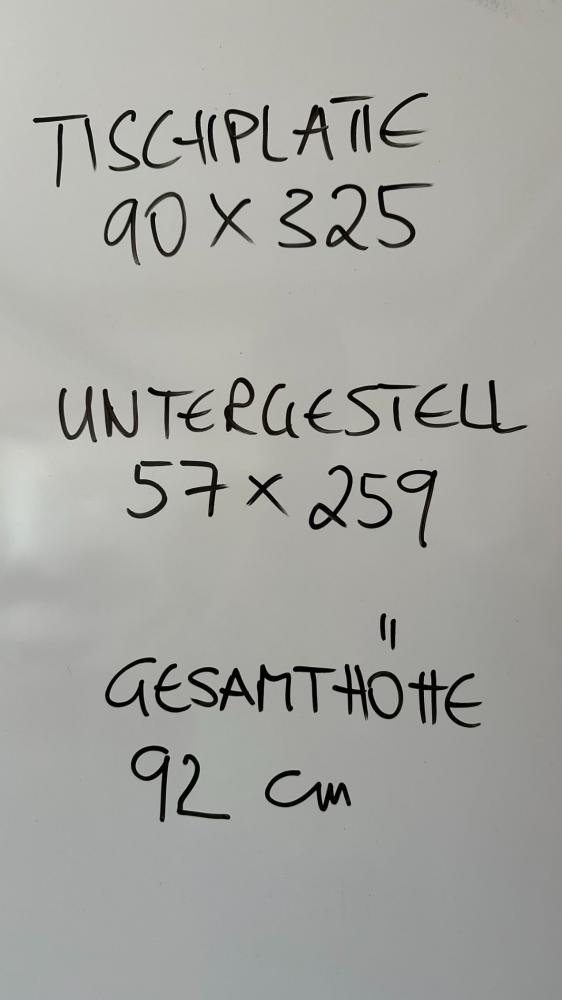 TISCHPLATTE
90 x 325
UNTERGESTELL
57 x 259
GESAMTHÖHE
92 cm